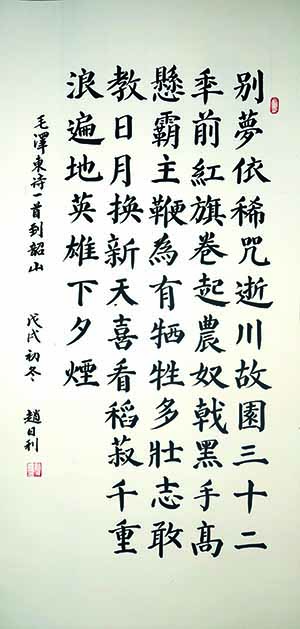 别夢依稀咒逝川故園三十二
秊前紅旗卷起農奴戟黑手高
懸霸主鞭為有牺牲多壯志敢
教日月换新天喜看稻菽千重
浪遍地英雄下夕煙
毛澤東诗一首到韶山 戊戌初冬 趙日利